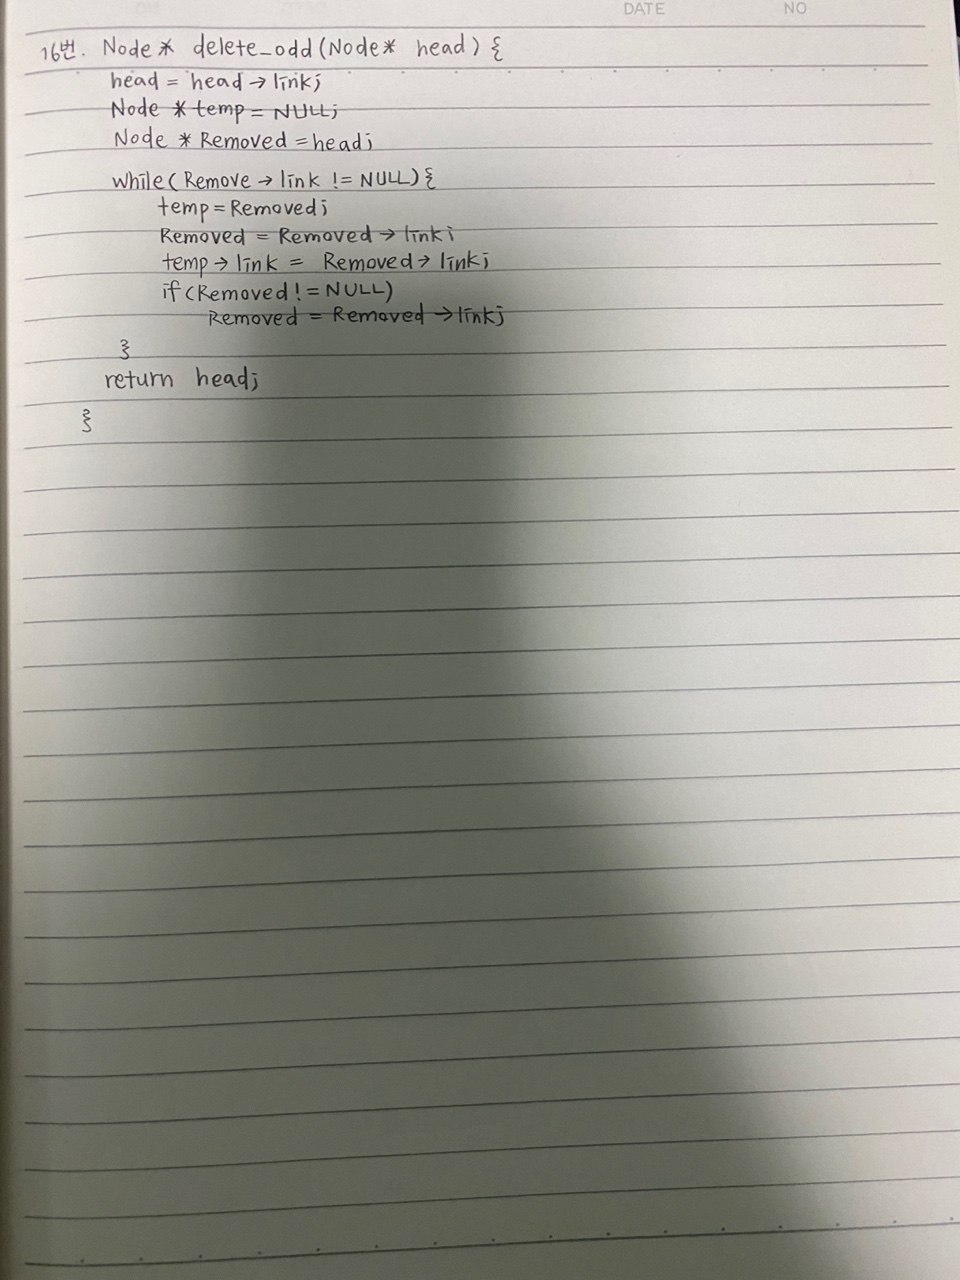 DATE NO
16번. Node * delete_odd(Node* head) {
head = head → link;
Node * temp = NULL;
Node * Removed = head;
while(Remove → link != NULL) {
temp = Removed;
Removed = Removed → link;
temp → link = Removed → link;
if(Removed != NULL)
Removed = Removed → link;
}
return head;
}